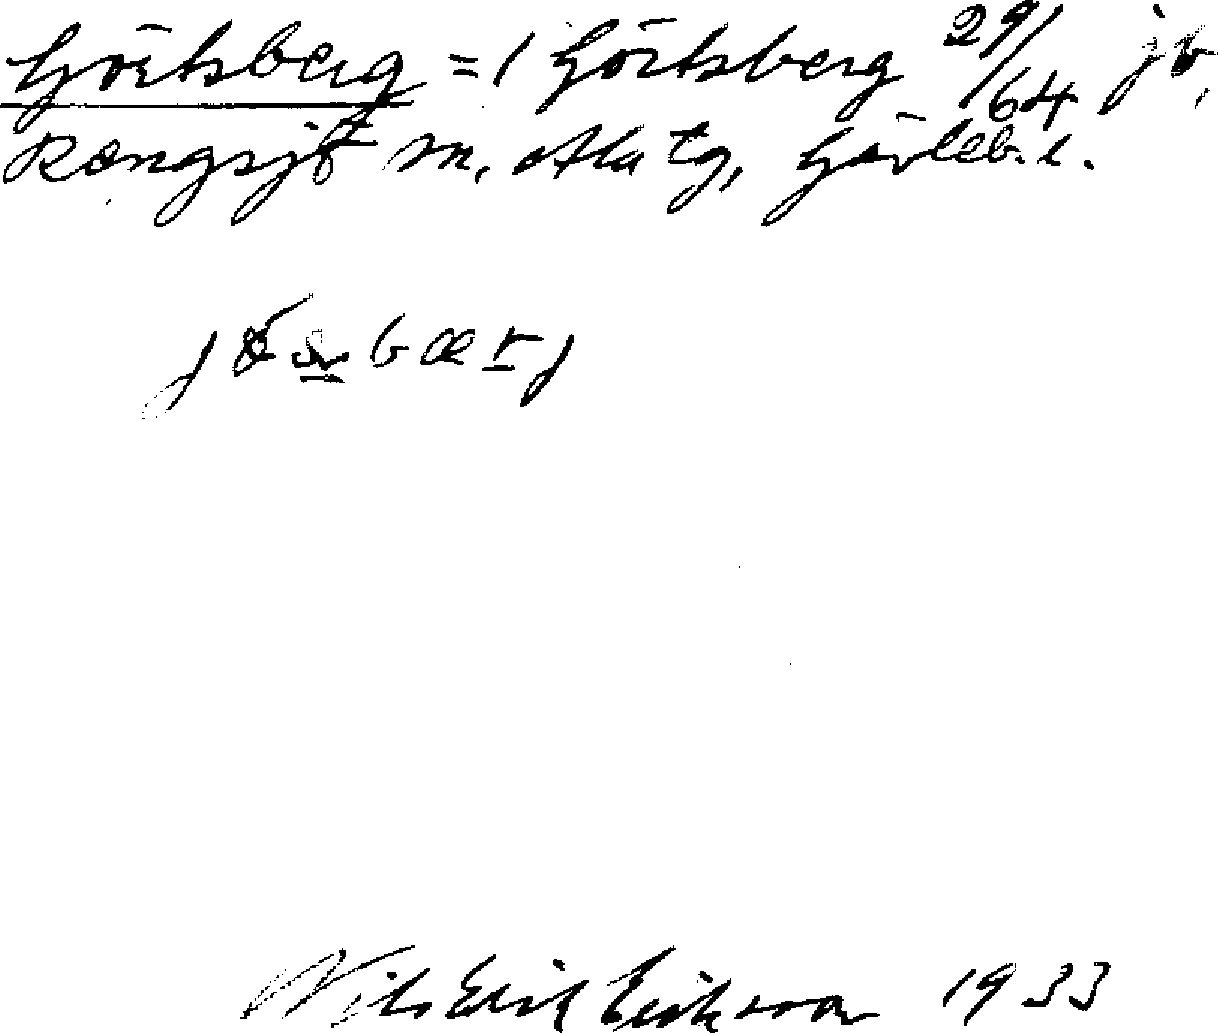 Görtsberg = 1 Görtsberg 29/64 jb,
Rengsjö sn. Ala tg, Gävleb. l.
Nils Erik Eriksson 1933